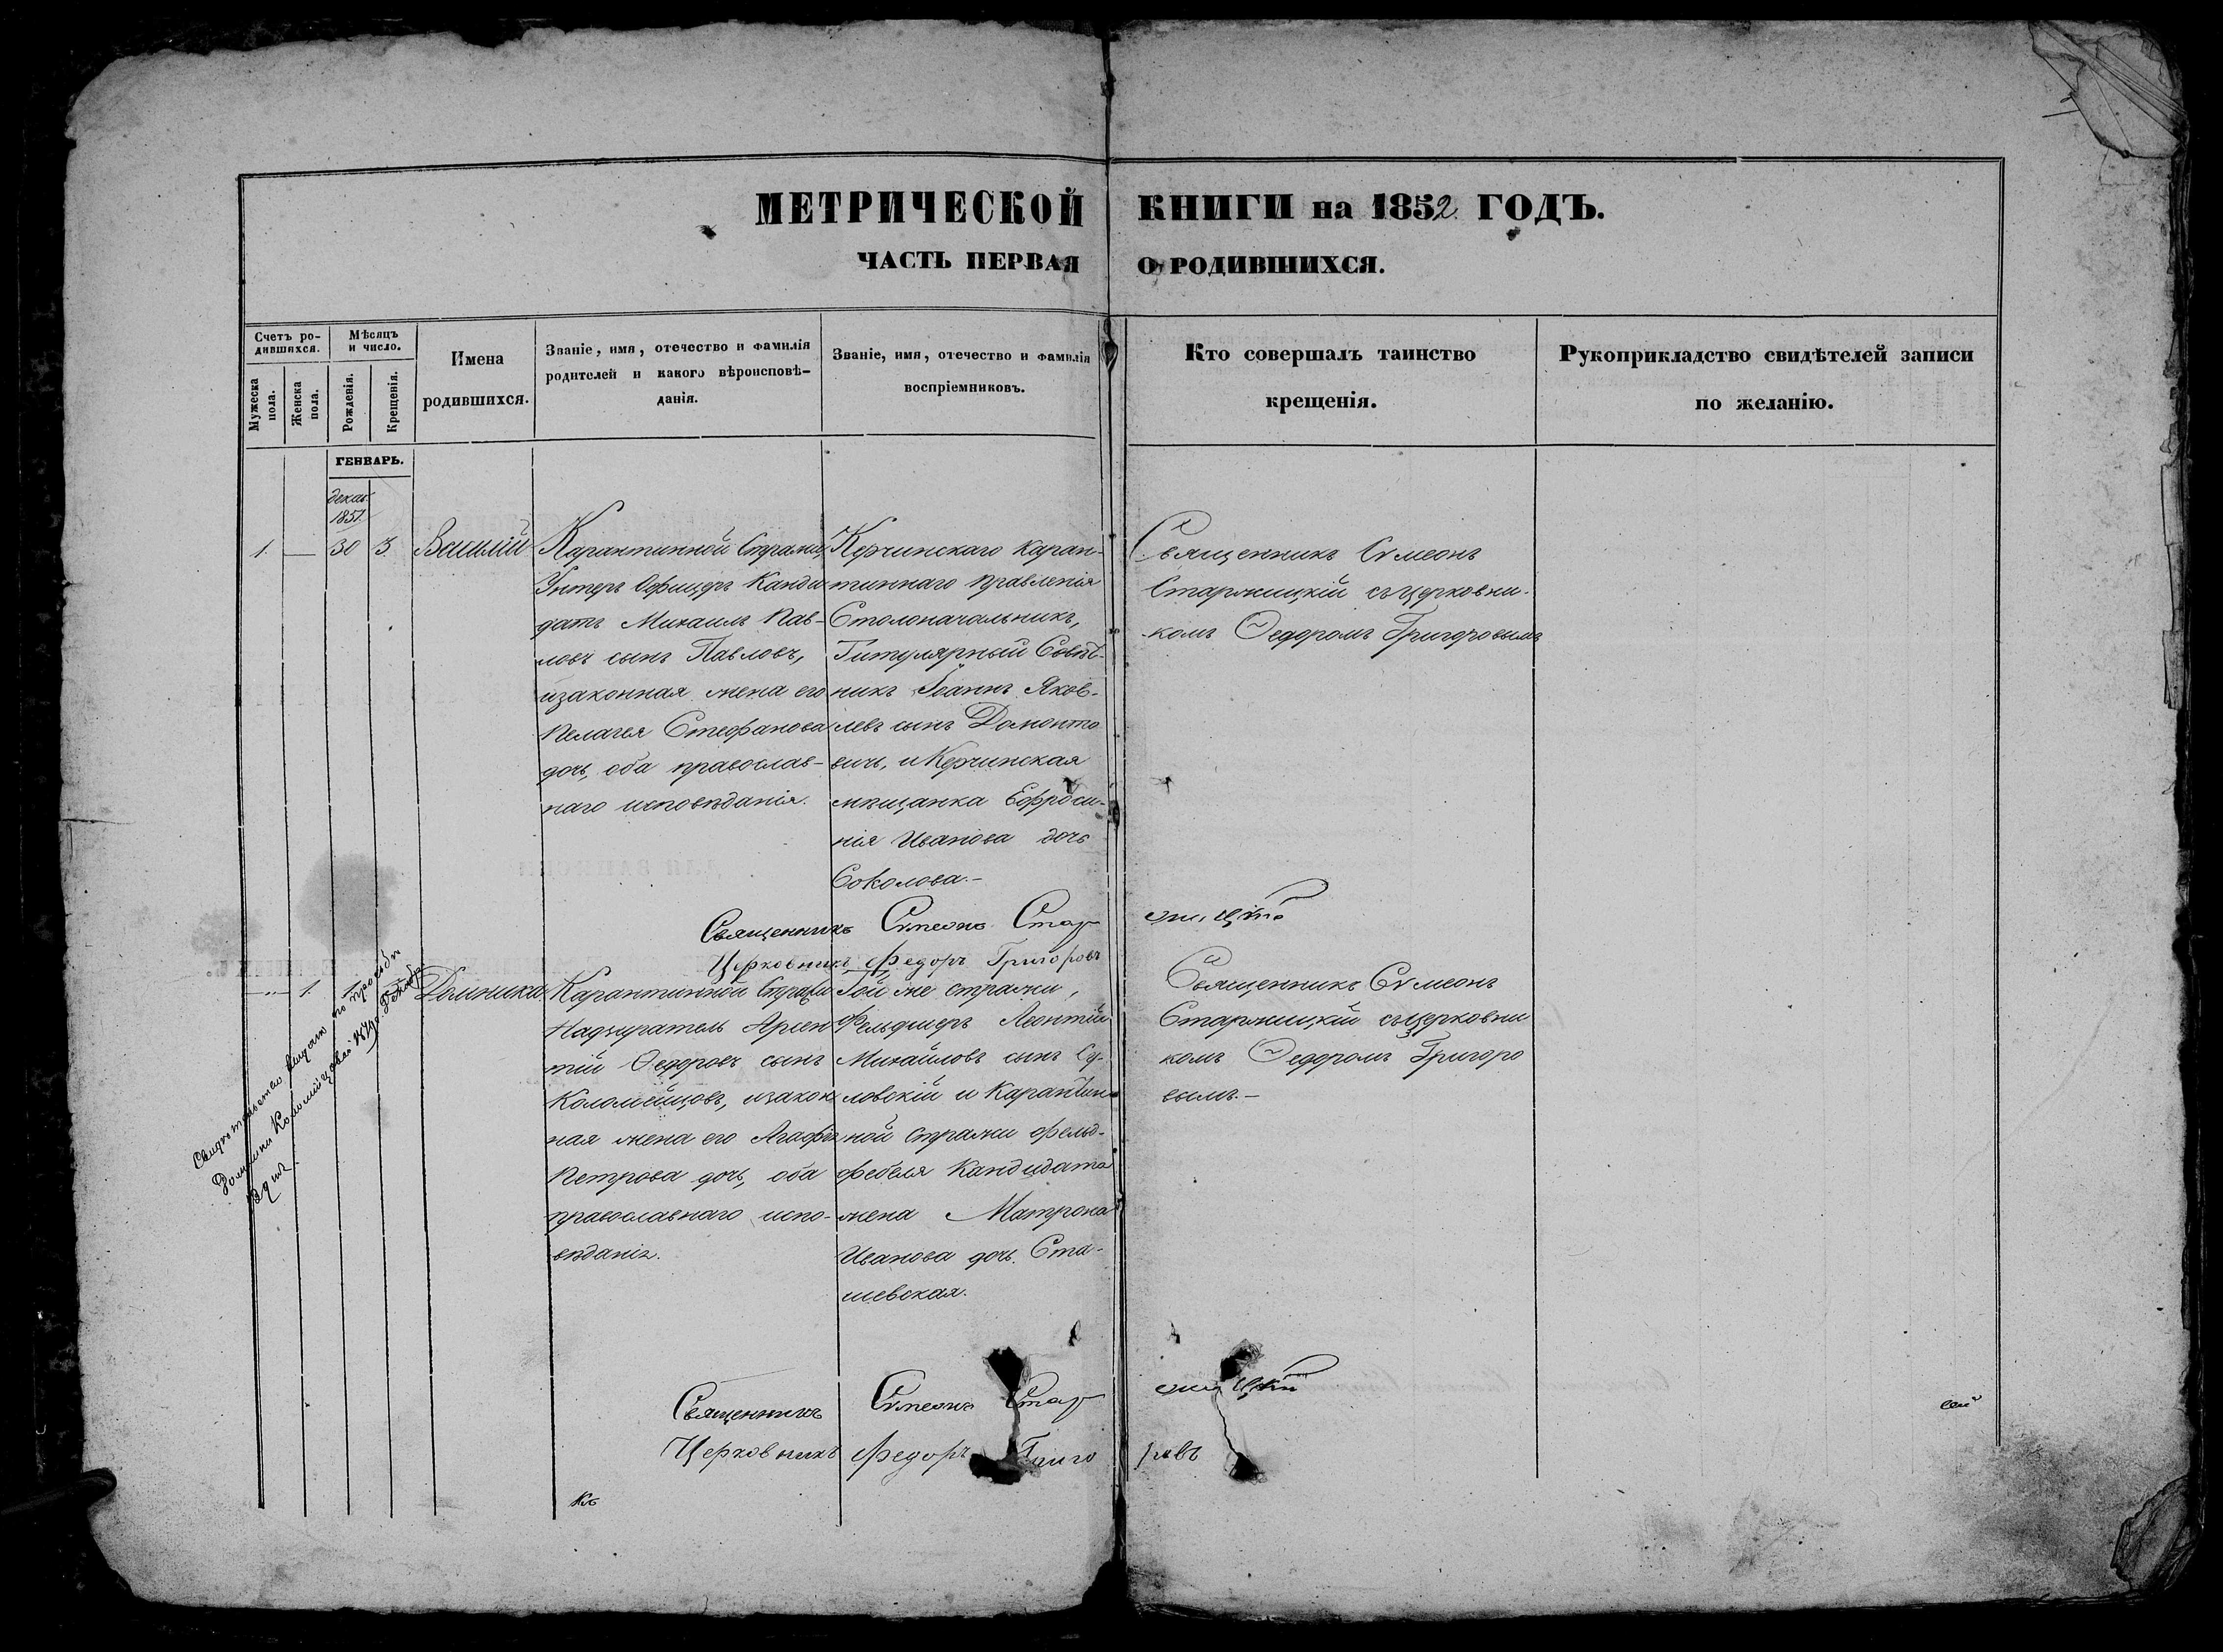 МЕТРИЧЕСКОЙ КНИГИ на 1852 ГОДЪ.
ЧАСТЬ ПЕРВАЯ О РОДИВШИХСЯ.
Счетъ ро-
дившихся.
Мужеска
пола.
Женска
пола.
Мѣсяцъ
и число.
Рожденія.
Крещенія.
Имена
родившихся.
Званіе, имя, отечество и фамилія
родителей и какого вѣроисповѣ-
данія.
Званіе, имя, отечество и фамилія
воспріемниковъ.
Кто совершалъ таинство
крещенія.
Рукоприкладство свидѣтелей записи
по желанію.
ГЕНВАРЬ.
декаб.
1851.
1. — 30 3. Василій
Карантинной Стражи,
Унтеръ Офицеръ Канди
датъ Михаилъ Пав-
ловъ сынъ Павловъ,
изаконная жена его
Пелагея Стефанова
дочь, оба православ-
наго исповѣданія.
Керчинскаго каран-
тиннаго правленія
Столоначальникъ,
Титулярный Совѣт-
никъ Іоаннъ Яков-
левъ сынъ Домонто
вичъ, и Керчинская
мѣщанка Ефроси-
нія Иванова дочь
Соколова.-
Священникъ Сѵмеонъ
Старжицкій съ церковни-
комъ Ѳедоромъ Григоровымъ
Священникъ Сѵмеонъ Стар жицкій
Церковникъ Федоръ Григоровъ
—"— 1. 1. Домника
Карантинной Стражи
Надзиратель Арсен
тій Ѳедоровъ сынъ
Коломійцовъ, изакон
ная жена его Агафія
Петрова дочь, оба
православнаго испо-
вѣданія.
Той же стражи,
Фельдшеръ Леонтій
Михайловъ сынъ Су-
ловскій и Карантин
ной Стражи Фельд-
фебеля Кандидата
жена Матрона
Иванова дочь Ста-
шевская.
Священникъ Сѵмеонъ
Старжицкій съ церковни
комъ Ѳедоромъ Григоро
вымъ.-
Свидетельство выдано по прозьби
Домники Коломійцовой 1871го Декабр.
Священникъ Сѵмеонъ Стар жицкій
Церковникъ Федоръ Григо ровъ
Къ
сей